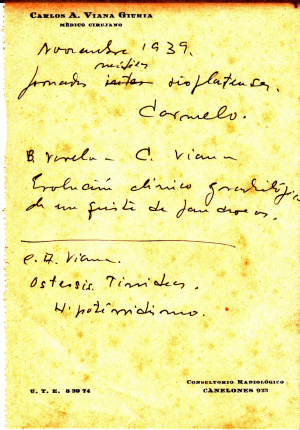 CARLOS A. VIANA GIURIA
MÉDICO CIRUJANO
Noviembre 1939.
médicas
Jornadas rioplatenses.
Carmelo.
B. Varela - C. Viana
Evolución clínico y radiológica
de un quiste de
C. A. Viana.
Ostessis Tiroidea.
Hipotiroidismo.
CONSULTORIO RADIOLÓGICO
U. T. E. 8 39 74
CANELONES 923